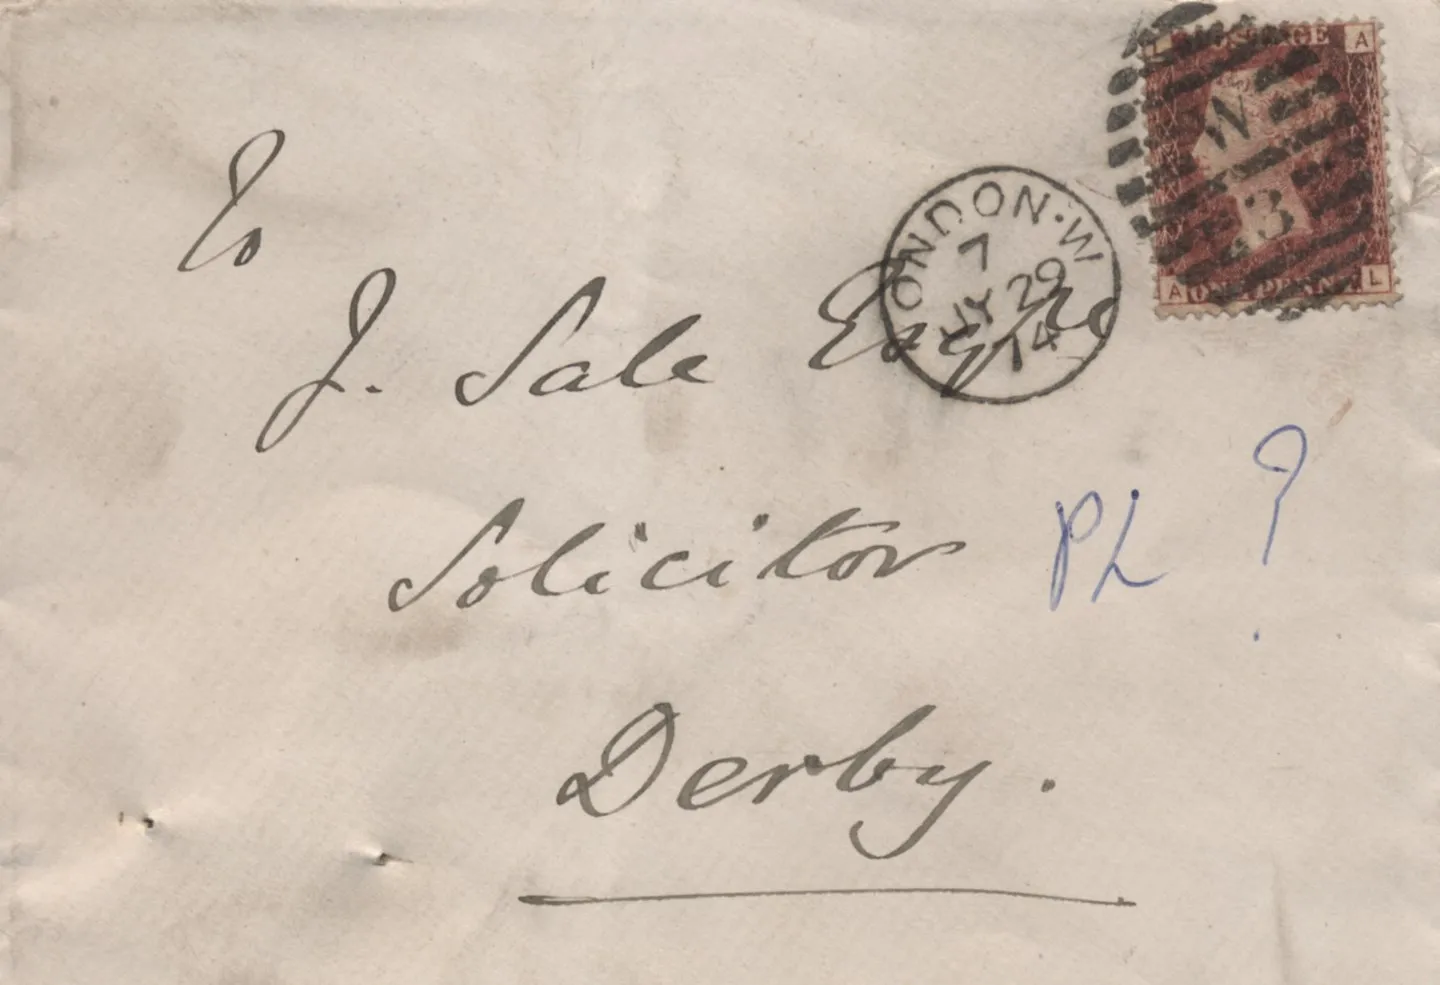 To
J. Sale Esqre
Solicitor
Derby.
PL ?
LONDON·W
7
JY 29
74
W
3
POSTAGE
L A
A L
ONE PENNY